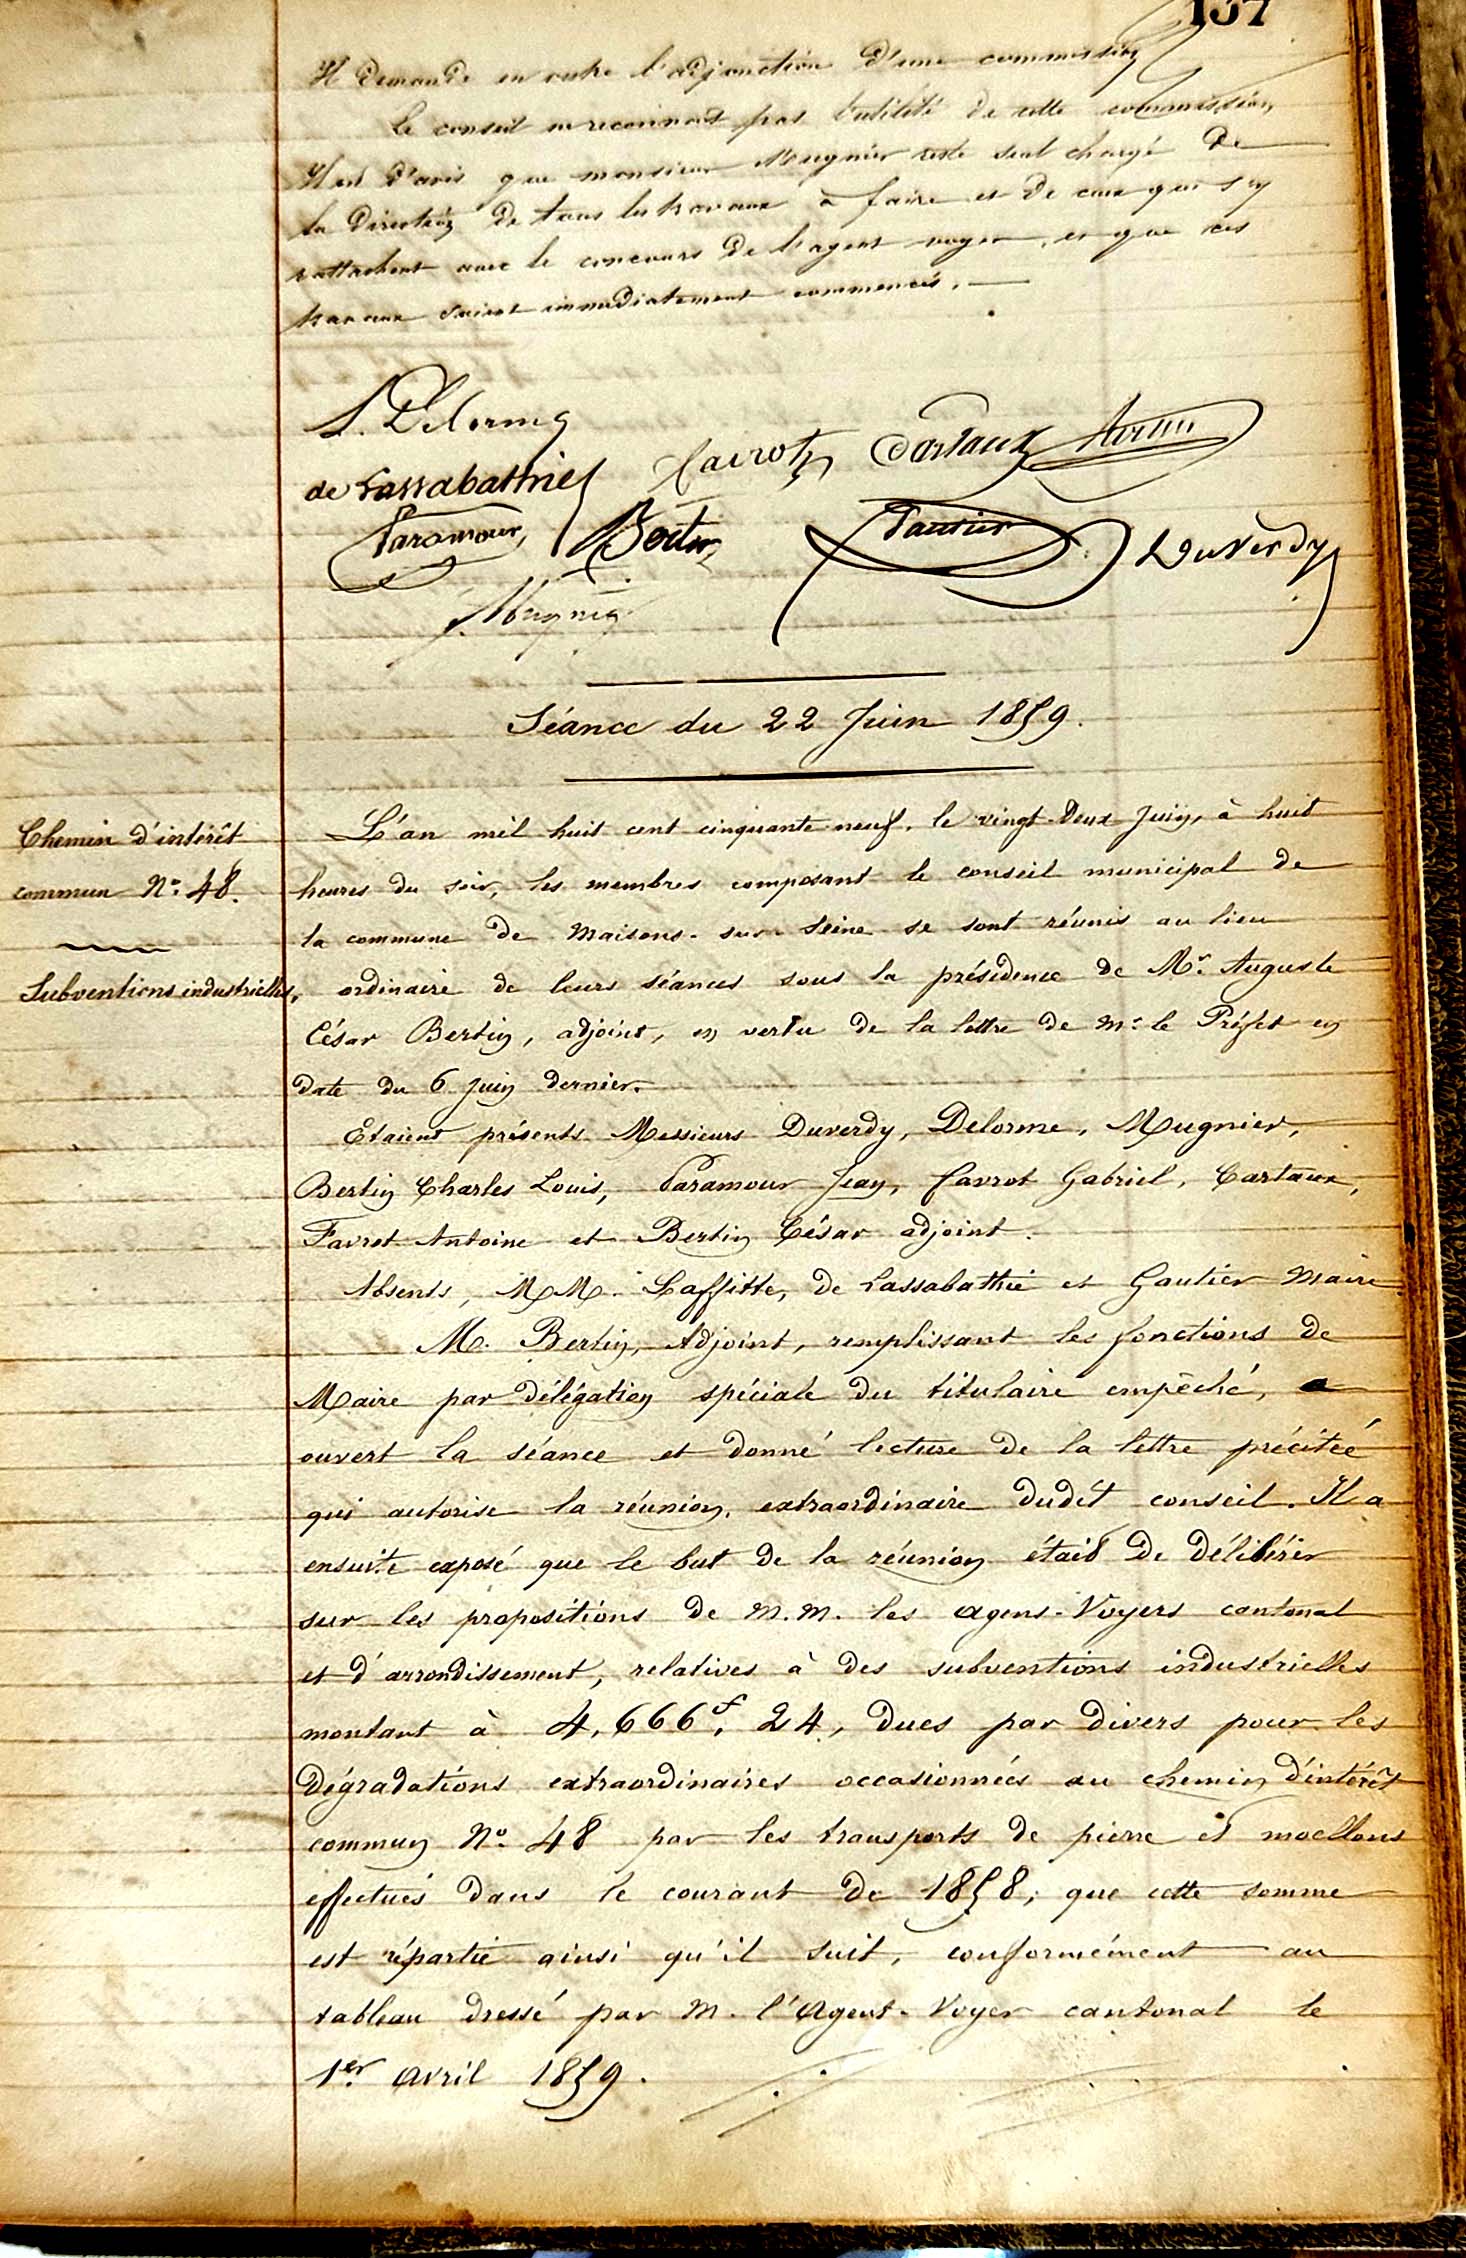 137
Il demande en outre l'adjonction d'une commission
le conseil ne reconnait pas l'utilité de cette commission,
Il est d'avis que monsieur Mugnier reste seul chargé de
la direction de tous les travaux à faire et de ceux qui s'y
rattachent avec le concours de l'agent voyer, et que ces
travaux soient immédiatement commencés.
L. Delorme
de Lassabathie Favrot Cartaux Bertin
Paramour Bertin Gautier Duverdy
f. Mugnier
Séance du 22 Juin 1859.
Chemin d'intérêt
commun No. 48.
Subventions industrielles.
L'an mil huit cent cinquante neuf, le vingt-deux Juin, à huit
heures du soir, les membres composant le conseil municipal de
la commune de Maisons-sur-Seine se sont réunis au lieu
ordinaire de leurs séances sous la présidence de Mr. Auguste
César Bertin, adjoint, en vertu de la lettre de Mr. le Préfet en
date du 6 Juin dernier.
Etaient présents Messieurs Duverdy, Delorme, Mugnier,
Bertin Charles Louis, Paramour Jean, Favrot Gabriel, Cartaux,
Favret Antoine et Bertin César adjoint.
Absents, MM. Laffitte, de Lassabathie et Gautier Maire
M. Bertin, Adjoint, remplissant les fonctions de
Maire par délégation spéciale du titulaire empêché, a
ouvert la séance et donné lecture de la lettre précitée
qui autorise la réunion extraordinaire dudit conseil. Il a
ensuite exposé que le but de la réunion était de délibérer
sur les propositions de M.M. les agens-Voyers cantonal
et d'arrondissement, relatives à des subventions industrielles
montant à 4,666f, 24, dues par divers pour les
dégradations extraordinaires occasionnées au chemin d'intérêt
commun No. 48 par les transports de pierre et moellons
effectués dans le courant de 1858; que cette somme
est répartie ainsi qu'il suit, conformément au
tableau dressé par M. l'Agent-Voyer cantonal le
1er. avril 1859.